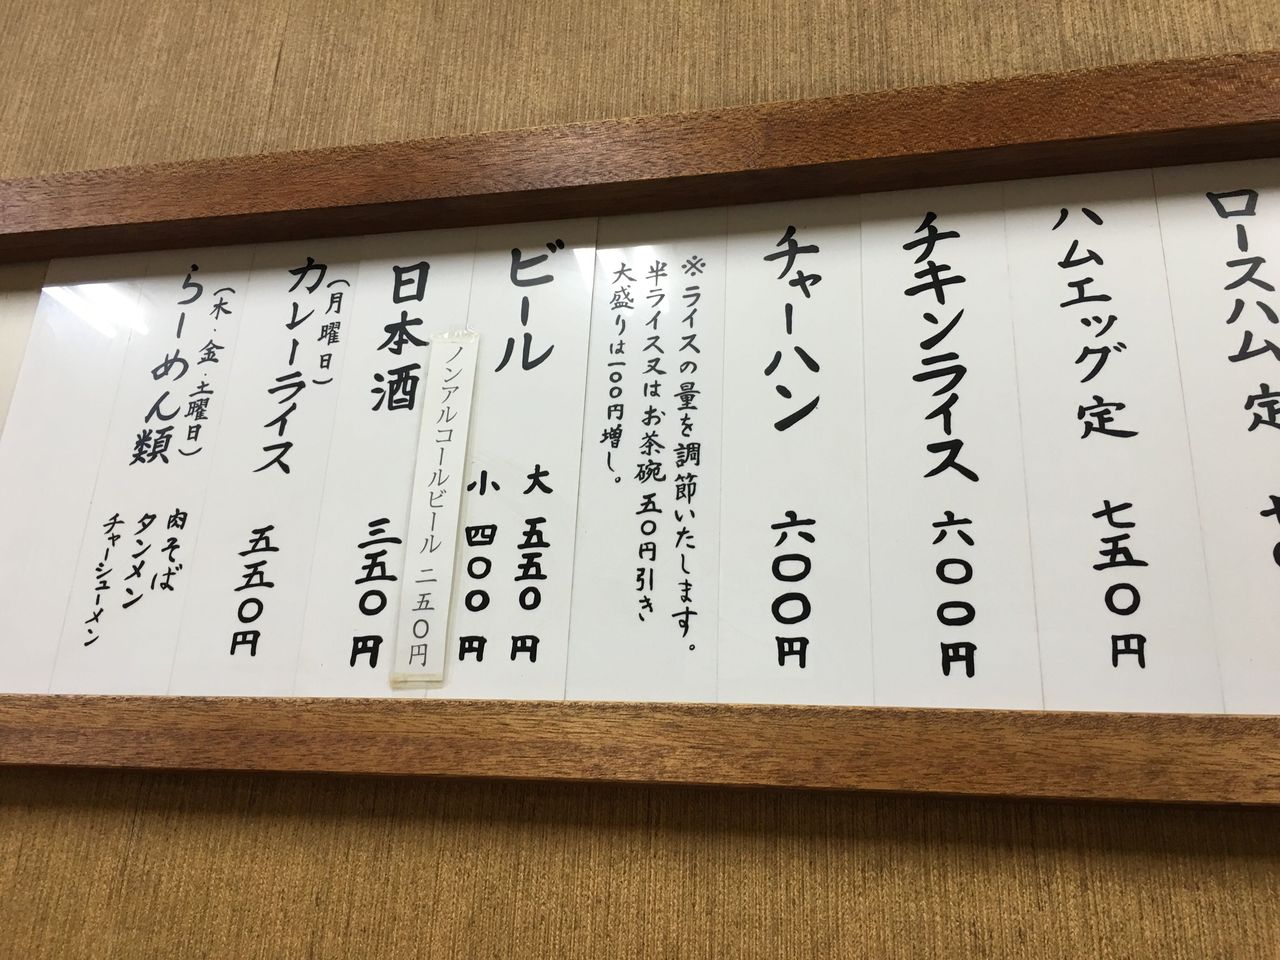 ロースハム定 七
ハムエッグ定 七五〇円
チキンライス 六〇〇円
チャーハン 六〇〇円
※ライスの量を調節いたします。
半ライス又はお茶碗五〇円引き
大盛りは一〇〇円増し。
ビール 大 五五〇円
小 四〇〇円
ノンアルコールビール 二五〇円
日本酒 三五〇円
(月曜日)
カレーライス 五五〇円
(木・金・土曜日)
らーめん類 肉そば
タンメン
チャーシューメン